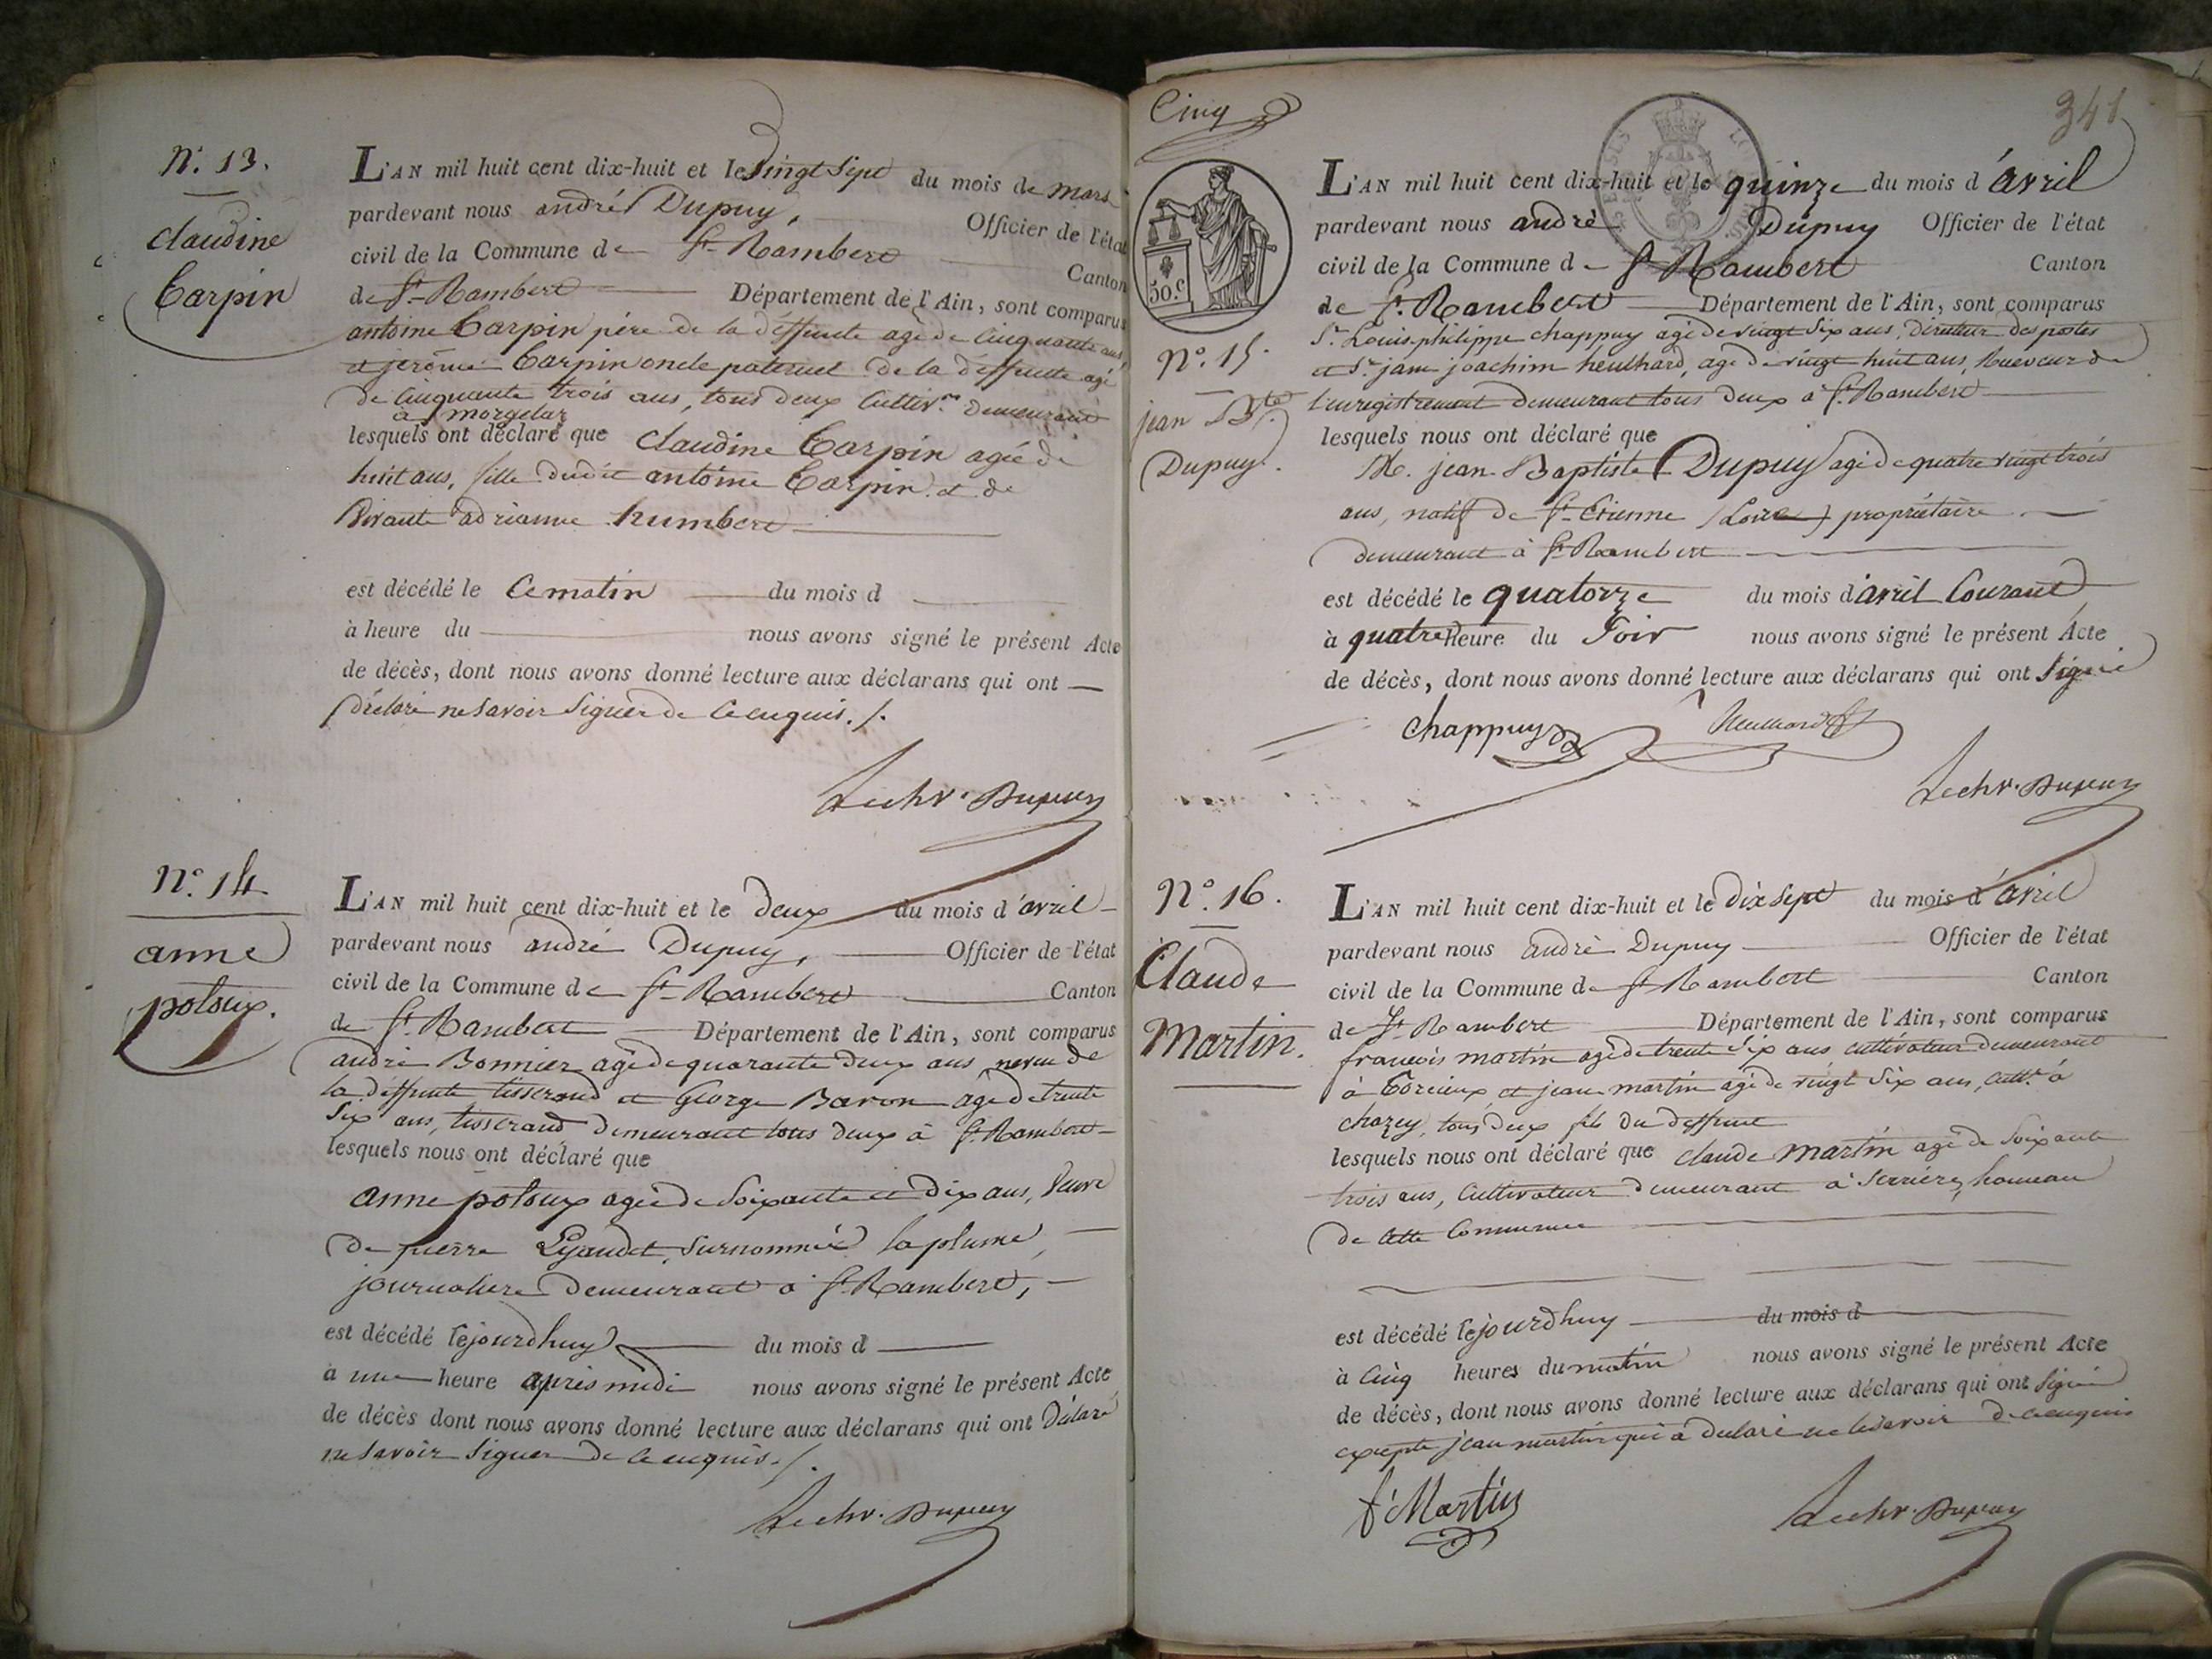 N.° 13.
claudine
Carpin
L'AN mil huit cent dix-huit et le vingt sept du mois de mars
pardevant nous andré Dupuy, Officier de l'état
civil de la Commune de St Rambert Canton
de St Rambert Département de l'Ain, sont comparus
antoine Carpin père de la deffunte agé de Cinquante ans,
et jerôme Carpin oncle paternel de la deffunte agé
de Cinquante trois ans, tous deux Cultiv.rs demeurant
à morgelaz
lesquels ont déclaré que claudine Carpin agée de
huit ans, fille dudit antoine Carpin et de
vivante adrianne humbert
est décédé le Ce matin du mois d
à heure du nous avons signé le présent Acte
de décès, dont nous avons donné lecture aux déclarans qui ont
déclaré ne savoir signer de ce enquis ./.
Dupuy
N.° 14
anne
poloux.
L'AN mil huit cent dix-huit et le deux du mois d'avril
pardevant nous andré Dupuy, Officier de l'état
civil de la Commune de St Rambert Canton
de St Rambert Département de l'Ain, sont comparus
andré Bonnier agé de quarante deux ans neveu de
la deffunte tisserand et George Baron agé de trente
Six ans, tisserand demeurant tous deux à St Rambert
lesquels nous ont déclaré que
anne poloux agée de Soixante et dix ans, Veuve
de pierre surnommé laplume,
journaliere demeurant à St Rambert,
est décédé lejourdhuy du mois d
à une heure après midi nous avons signé le présent Acte
de décès dont nous avons donné lecture aux déclarans qui ont Déclaré
ne savoir signer de ce enquis ./.
Dupuy
Cinq
341
50.c
N.° 15.
jean Bte
Dupuy.
L'AN mil huit cent dix-huit et le quinze du mois d'avril
pardevant nous andré Dupuy Officier de l'état
civil de la Commune d St Rambert Canton
de St Rambert Département de l'Ain, sont comparus
Sr Louis philippe chappuy agé de vingt Six ans, directeur des postes
et Sr jean joachim heulhard, agé de vingt huit ans, Receveur de
l'enregistrement demeurant tous deux à St Rambert
lesquels nous ont déclaré que
M. jean Baptiste Dupuy agé de quatre vingt trois
ans, natif de St Etienne (Loire) propriétaire
demeurant à St Rambert
est décédé le quatorze du mois d'avril Courant
à quatre heure du Soir nous avons signé le présent Acte
de décès, dont nous avons donné lecture aux déclarans qui ont signé
chappuy Heulhard
Dupuy
N.° 16.
Claude
Martin.
L'AN mil huit cent dix-huit et le dix sept du mois d'avril
pardevant nous andré Dupuy Officier de l'état
civil de la Commune de St Rambert Canton
de St Rambert Département de l'Ain, sont comparus
francois martin agé de trente Six ans cultivateur demeurant
à Torcieux et jean martin agé de vingt Six ans, cultr à
chazey, tous deux fils du deffunt
lesquels nous ont déclaré que claude martin agé de Soixante
trois ans, Cultivateur demeurant à Serrière, hameau
de Cette Commune
est décédé lejourdhuy du mois d
à Cinq heures du matin nous avons signé le présent Acte
de décès, dont nous avons donné lecture aux déclarans qui ont signé
excepté jean martin qui a declaré ne le savoir de ce enquis
f Martin
Dupuy